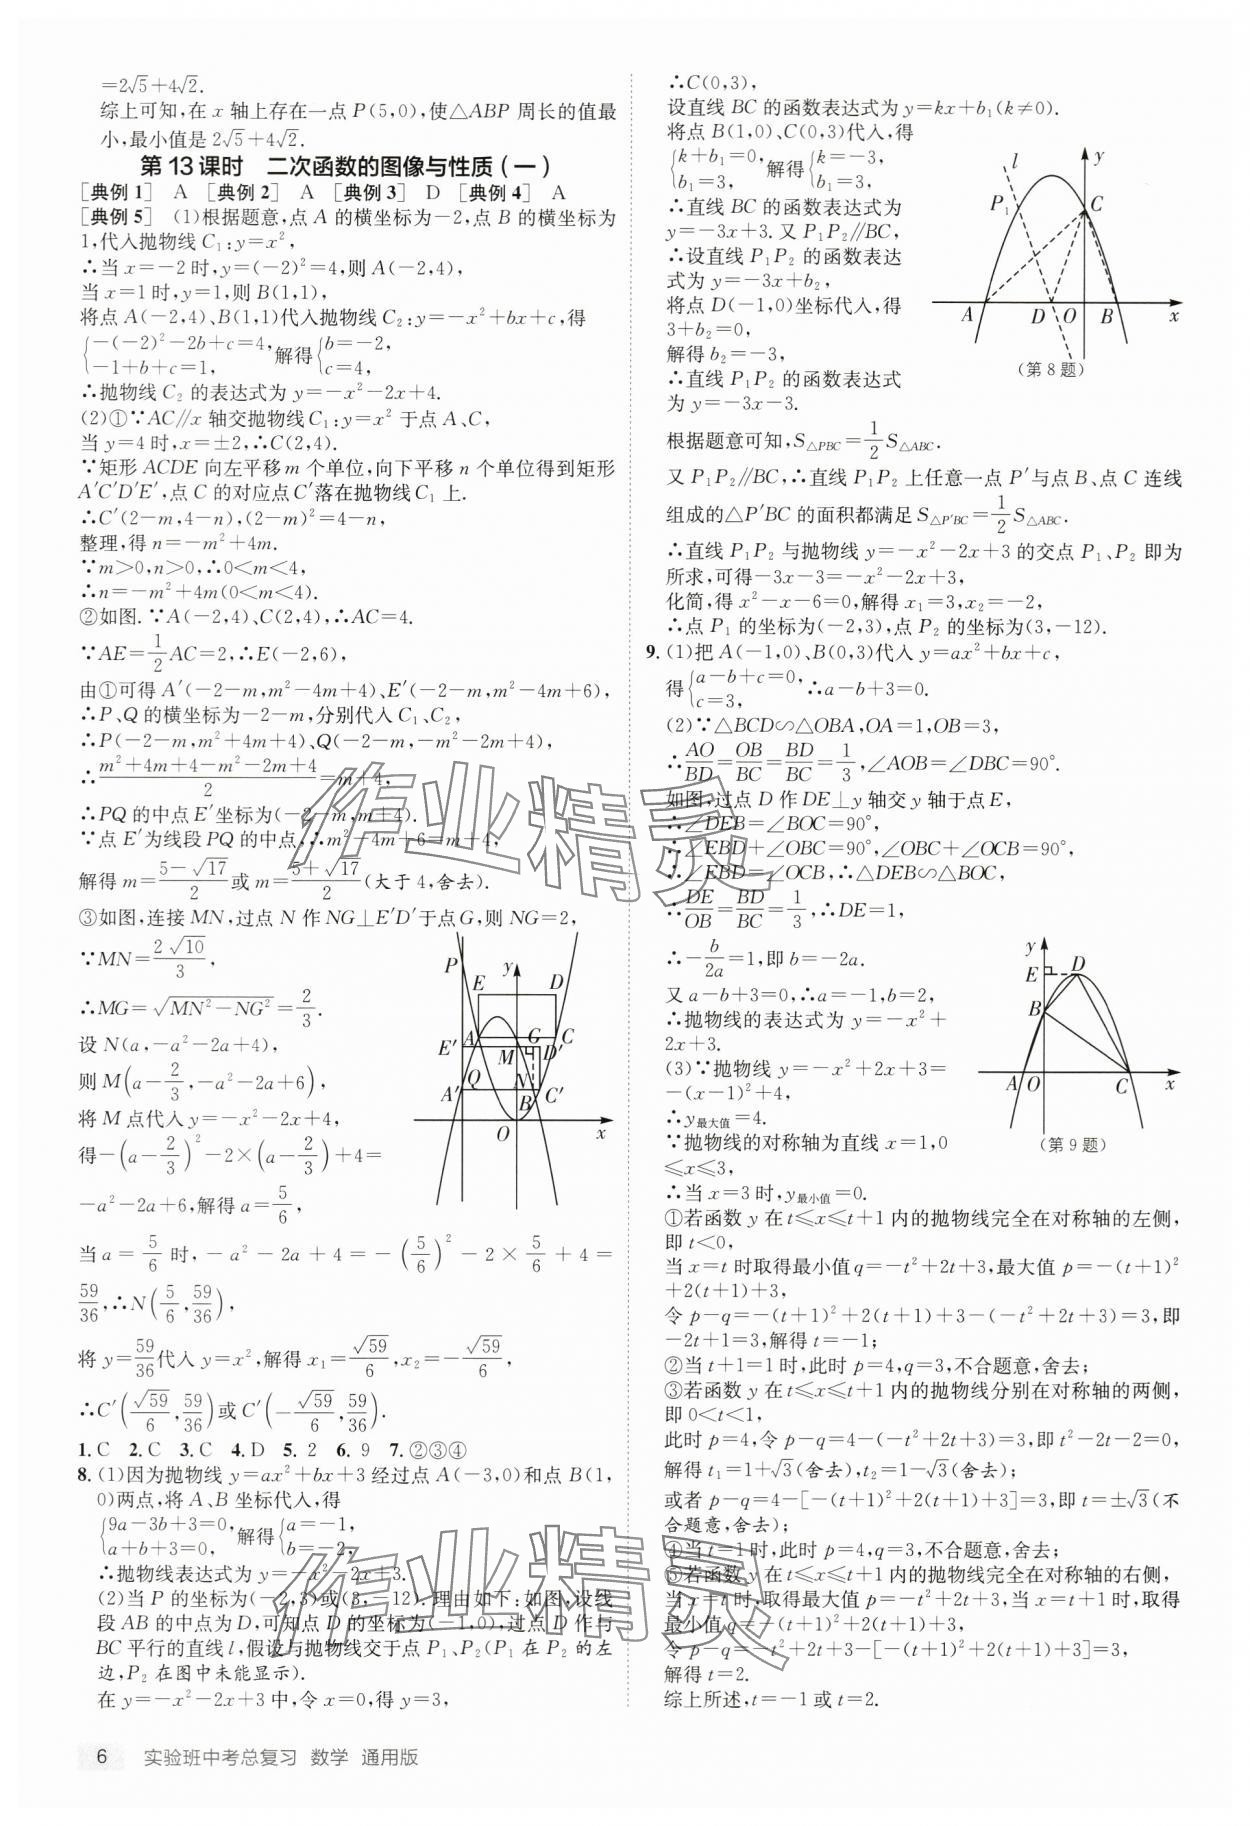 =2√5+4√2.
综上可知,在 x 轴上存在一点 P(5,0),使△ABP 周长的值最
小,最小值是 2√5+4√2.
第 13 课时　二次函数的图像与性质(一)
[典例 1]　A　[典例 2]　A　[典例 3]　D　[典例 4]　A
[典例 5]　(1)根据题意,点 A 的横坐标为-2,点 B 的横坐标为
1,代入抛物线 C₁:y=x²,
∴当 x=-2 时,y=(-2)²=4,则 A(-2,4),
当 x=1 时,y=1,则 B(1,1),
将点 A(-2,4)、B(1,1)代入抛物线 C₂:y=-x²+bx+c,得
{-(-2)²-2b+c=4, -1+b+c=1, 解得{b=-2, c=4,
∴抛物线 C₂ 的表达式为 y=-x²-2x+4.
(2)①∵AC∥x 轴交抛物线 C₁:y=x² 于点 A、C,
当 y=4 时,x=±2,∴C(2,4).
∵矩形 ACDE 向左平移 m 个单位,向下平移 n 个单位得到矩形
A′C′D′E′,点 C 的对应点 C′落在抛物线 C₁ 上.
∴C′(2-m,4-n),(2-m)²=4-n,
整理,得 n=-m²+4m.
∵m>0,n>0,∴0<m<4,
∴n=-m²+4m(0<m<4).
②如图.∵A(-2,4)、C(2,4),∴AC=4.
∵AE=1/2 AC=2,∴E(-2,6),
由①可得 A′(-2-m,m²-4m+4)、E′(-2-m,m²-4m+6),
∴P、Q 的横坐标为-2-m,分别代入 C₁、C₂,
∴P(-2-m,m²+4m+4)、Q(-2-m,-m²-2m+4),
∴(m²+4m+4-m²-2m+4)/2=m+4,
∴PQ 的中点 E′坐标为(-2-m,m+4).
∵点 E′为线段 PQ 的中点,∴m²-4m+6=m+4,
解得 m=(5-√17)/2 或 m=(5+√17)/2(大于 4,舍去).
③如图,连接 MN,过点 N 作 NG⊥E′D′于点 G,则 NG=2,
∵MN=2√10/3,
∴MG=√(MN²-NG²)=2/3.
设 N(a,-a²-2a+4),
则 M(a-2/3,-a²-2a+6),
将 M 点代入 y=-x²-2x+4,
得-(a-2/3)²-2×(a-2/3)+4=
-a²-2a+6,解得 a=5/6,
P
y
E
D
A
G
C
E′
M
D′
Q
N
A′
B
C′
O
x
当 a=5/6 时,-a²-2a+4=-(5/6)²-2×5/6+4=
59/36,∴N(5/6,59/36),
将 y=59/36 代入 y=x²,解得 x₁=√59/6,x₂=-√59/6,
∴C′(√59/6,59/36)或 C′(-√59/6,59/36).
1. C　2. C　3. C　4. D　5. 2　6. 9　7. ②③④
8. (1)因为抛物线 y=ax²+bx+3 经过点 A(-3,0)和点 B(1,
0)两点,将 A、B 坐标代入,得
{9a-3b+3=0, a+b+3=0, 解得{a=-1, b=-2,
∴抛物线表达式为 y=-x²-2x+3.
(2)当 P 的坐标为(-2,3)或(3,-12).理由如下:如图,设线
段 AB 的中点为 D,可知点 D 的坐标为(-1,0),过点 D 作与
BC 平行的直线 l,假设与抛物线交于点 P₁、P₂(P₁ 在 P₂ 的左
边,P₂ 在图中未能显示).
在 y=-x²-2x+3 中,令 x=0,得 y=3,
∴C(0,3),
设直线 BC 的函数表达式为 y=kx+b₁(k≠0).
将点 B(1,0)、C(0,3)代入,得
{k+b₁=0, b₁=3, 解得{k=-3, b₁=3,
∴直线 BC 的函数表达式为
y=-3x+3.又 P₁P₂∥BC,
∴设直线 P₁P₂ 的函数表达
式为 y=-3x+b₂,
将点 D(-1,0)坐标代入,得
3+b₂=0,
解得 b₂=-3,
∴直线 P₁P₂ 的函数表达式
为 y=-3x-3.
l
y
P₁
C
A
D
O
B
x
(第 8 题)
根据题意可知,S△PBC=1/2 S△ABC.
又 P₁P₂∥BC,∴直线 P₁P₂ 上任意一点 P′与点 B、点 C 连线
组成的△P′BC 的面积都满足 S△P′BC=1/2 S△ABC.
∴直线 P₁P₂ 与抛物线 y=-x²-2x+3 的交点 P₁、P₂ 即为
所求,可得-3x-3=-x²-2x+3,
化简,得 x²-x-6=0,解得 x₁=3,x₂=-2,
∴点 P₁ 的坐标为(-2,3),点 P₂ 的坐标为(3,-12).
9. (1)把 A(-1,0)、B(0,3)代入 y=ax²+bx+c,
得{a-b+c=0, c=3, ∴a-b+3=0.
(2)∵△BCD∽△OBA,OA=1,OB=3,
∴AO/BD=OB/BC=BD/BC=1/3,∠AOB=∠DBC=90°.
如图,过点 D 作 DE⊥y 轴交 y 轴于点 E,
∴∠DEB=∠BOC=90°,
∴∠EBD+∠OBC=90°,∠OBC+∠OCB=90°,
∴∠EBD=∠OCB,∴△DEB∽△BOC,
∴DE/OB=BD/BC=1/3,∴DE=1,
∴-b/2a=1,即 b=-2a.
又 a-b+3=0,∴a=-1,b=2,
∴抛物线的表达式为 y=-x²+
2x+3.
(3)∵抛物线 y=-x²+2x+3=
-(x-1)²+4,
∴y最大值=4.
∵抛物线的对称轴为直线 x=1,0
≤x≤3,
∴当 x=3 时,y最小值=0.
y
E
D
B
A
O
C
x
(第 9 题)
①若函数 y 在 t≤x≤t+1 内的抛物线完全在对称轴的左侧,
即 t<0,
当 x=t 时取得最小值 q=-t²+2t+3,最大值 p=-(t+1)²
+2(t+1)+3,
令 p-q=-(t+1)²+2(t+1)+3-(-t²+2t+3)=3,即
-2t+1=3,解得 t=-1;
②当 t+1=1 时,此时 p=4,q=3,不合题意,舍去;
③若函数 y 在 t≤x≤t+1 内的抛物线分别在对称轴的两侧,
即 0<t<1,
此时 p=4,令 p-q=4-(-t²+2t+3)=3,即 t²-2t-2=0,
解得 t₁=1+√3(舍去),t₂=1-√3(舍去);
或者 p-q=4-[-(t+1)²+2(t+1)+3]=3,即 t=±√3(不
合题意,舍去);
④当 t=1 时,此时 p=4,q=3,不合题意,舍去;
⑤若函数 y 在 t≤x≤t+1 内的抛物线完全在对称轴的右侧,
当 x=t 时,取得最大值 p=-t²+2t+3,当 x=t+1 时,取得
最小值 q=-(t+1)²+2(t+1)+3,
令 p-q=-t²+2t+3-[-(t+1)²+2(t+1)+3]=3,
解得 t=2.
综上所述,t=-1 或 t=2.
作业精灵
作业精灵
6　实验班中考总复习　数学　通用版